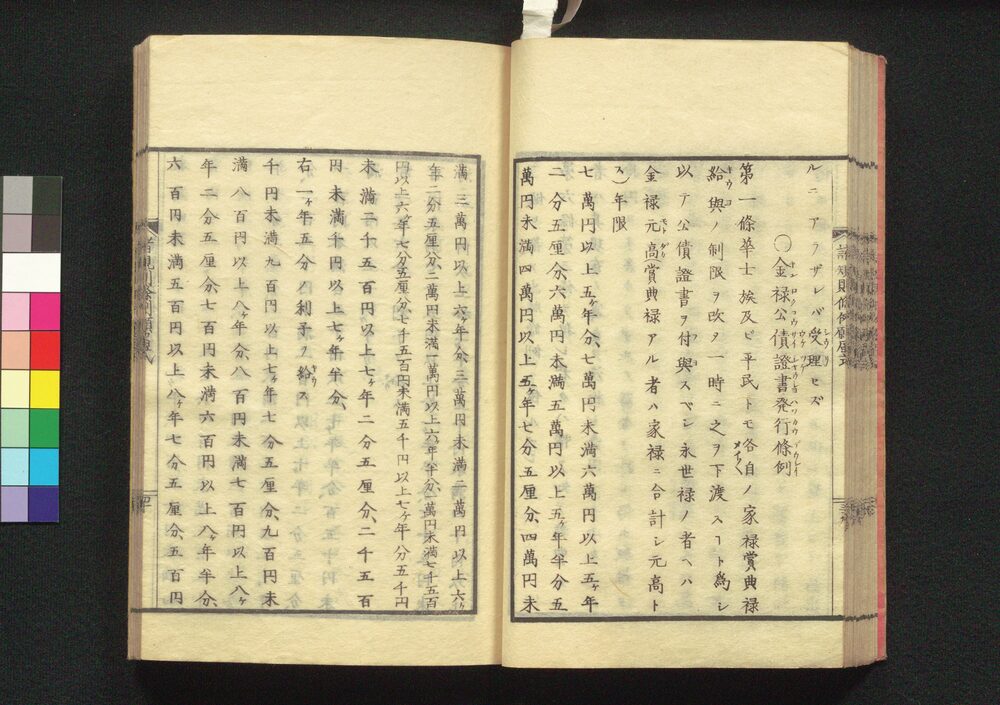 ルニアラザレバ受理セズ
〇金禄公債證書発行條例
第一條華士族及ビ平民トモ各自ノ家禄賞典禄
給與ノ制限ヲ改ヲ一時ニ之ヲ下渡スヿト為シ
以テ公債證書ヲ付與スベシ永世禄ノ者ヘハ
金禄元高賞典禄アル者ハ家禄ニ合計シ元高ト
ス)年限
七萬円以上五ヶ年分、七萬円未満六萬円以上五ヶ年
二分五厘分、六萬円未満五萬円以上五ヶ年半分五
萬円未満四萬円以上五ヶ年七分五厘分、四萬円未
満三萬円以上六ヶ年分、三萬円未満二萬円以上六ヶ
年二分五厘分、二萬円未満一萬円以上六ヶ年半分、一萬円未満七千五百
円以上六ヶ年七分五厘分、七千五百円未満五千円以上七ヶ年分五千円
未満二千五百円以上七ヶ年二分五厘分、二千五百
円未満千円以上七ヶ年半分、
右一ヶ年五分ノ利子ヲ給ス
千円未満九百円以上七ヶ年七分五厘分、九百円未
満八百円以上八ヶ年分、八百円未満七百円以上八ヶ
年二分五厘分、七百円未満六百円以上八ヶ年半分、
六百円未満五百円以上八ヶ年七分五厘分、五百円